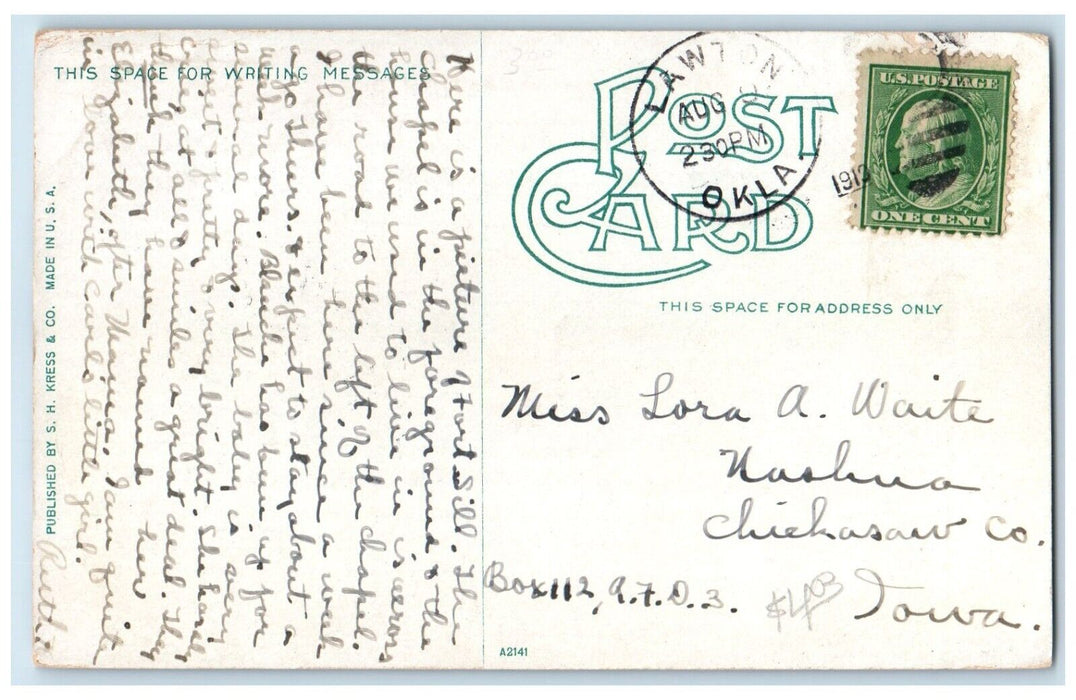 THIS SPACE FOR WRITING MESSAGES
Here is a picture of Fort Sill. The
chapel is in the foreground & the
house we used to live in is across
the road to the left of the chapel.
I have been here since a week
ago Thurs. & expect to stay about a
week more. Blanche has been up for
several days. The baby is very
sweet & pretty & very bright. She hardly
cries at all & smiles a great deal. They
think they have named her
Elizabeth, after Mama. I am quite
in love with Carl's little girl.
Rutha
PUBLISHED BY S. H. KRESS & CO. MADE IN U. S. A.
POST CARD
LAWTON
AUG
230 PM
OKLA.
191
U.S. POSTAGE
ONE CENT
THIS SPACE FOR ADDRESS ONLY
Miss Lora A. Waite
Nashua
Chickasaw Co.
Box 112, R.F.D. 3.
Iowa.
A2141